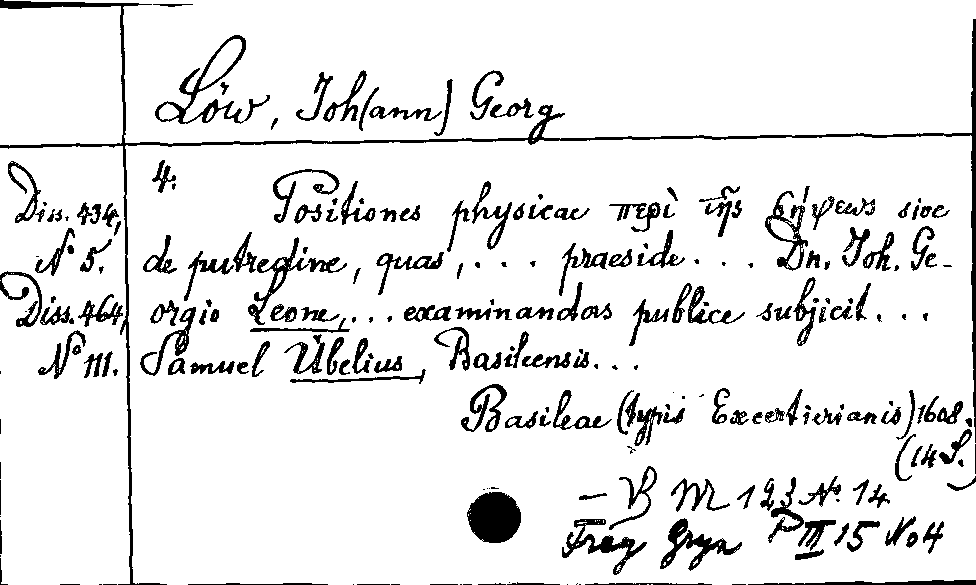 Löw, Joh(ann) Georg
4.
Diss. 434,
N° 5.
Diss. 464,
N° 111.
Positiones physicae περὶ τῆς σήψεως sive
de putredine, quas, ... praeside ... Dn. Joh. Ge-
orgio Leone, ... examinandas publice subjicit ...
Samuel Übelius, Basileensis ...
Basileae (typis Excertierianis) 1608.
(14 S.)
— VB M 123 N° 14
Frey Gryn P III 15 No 4